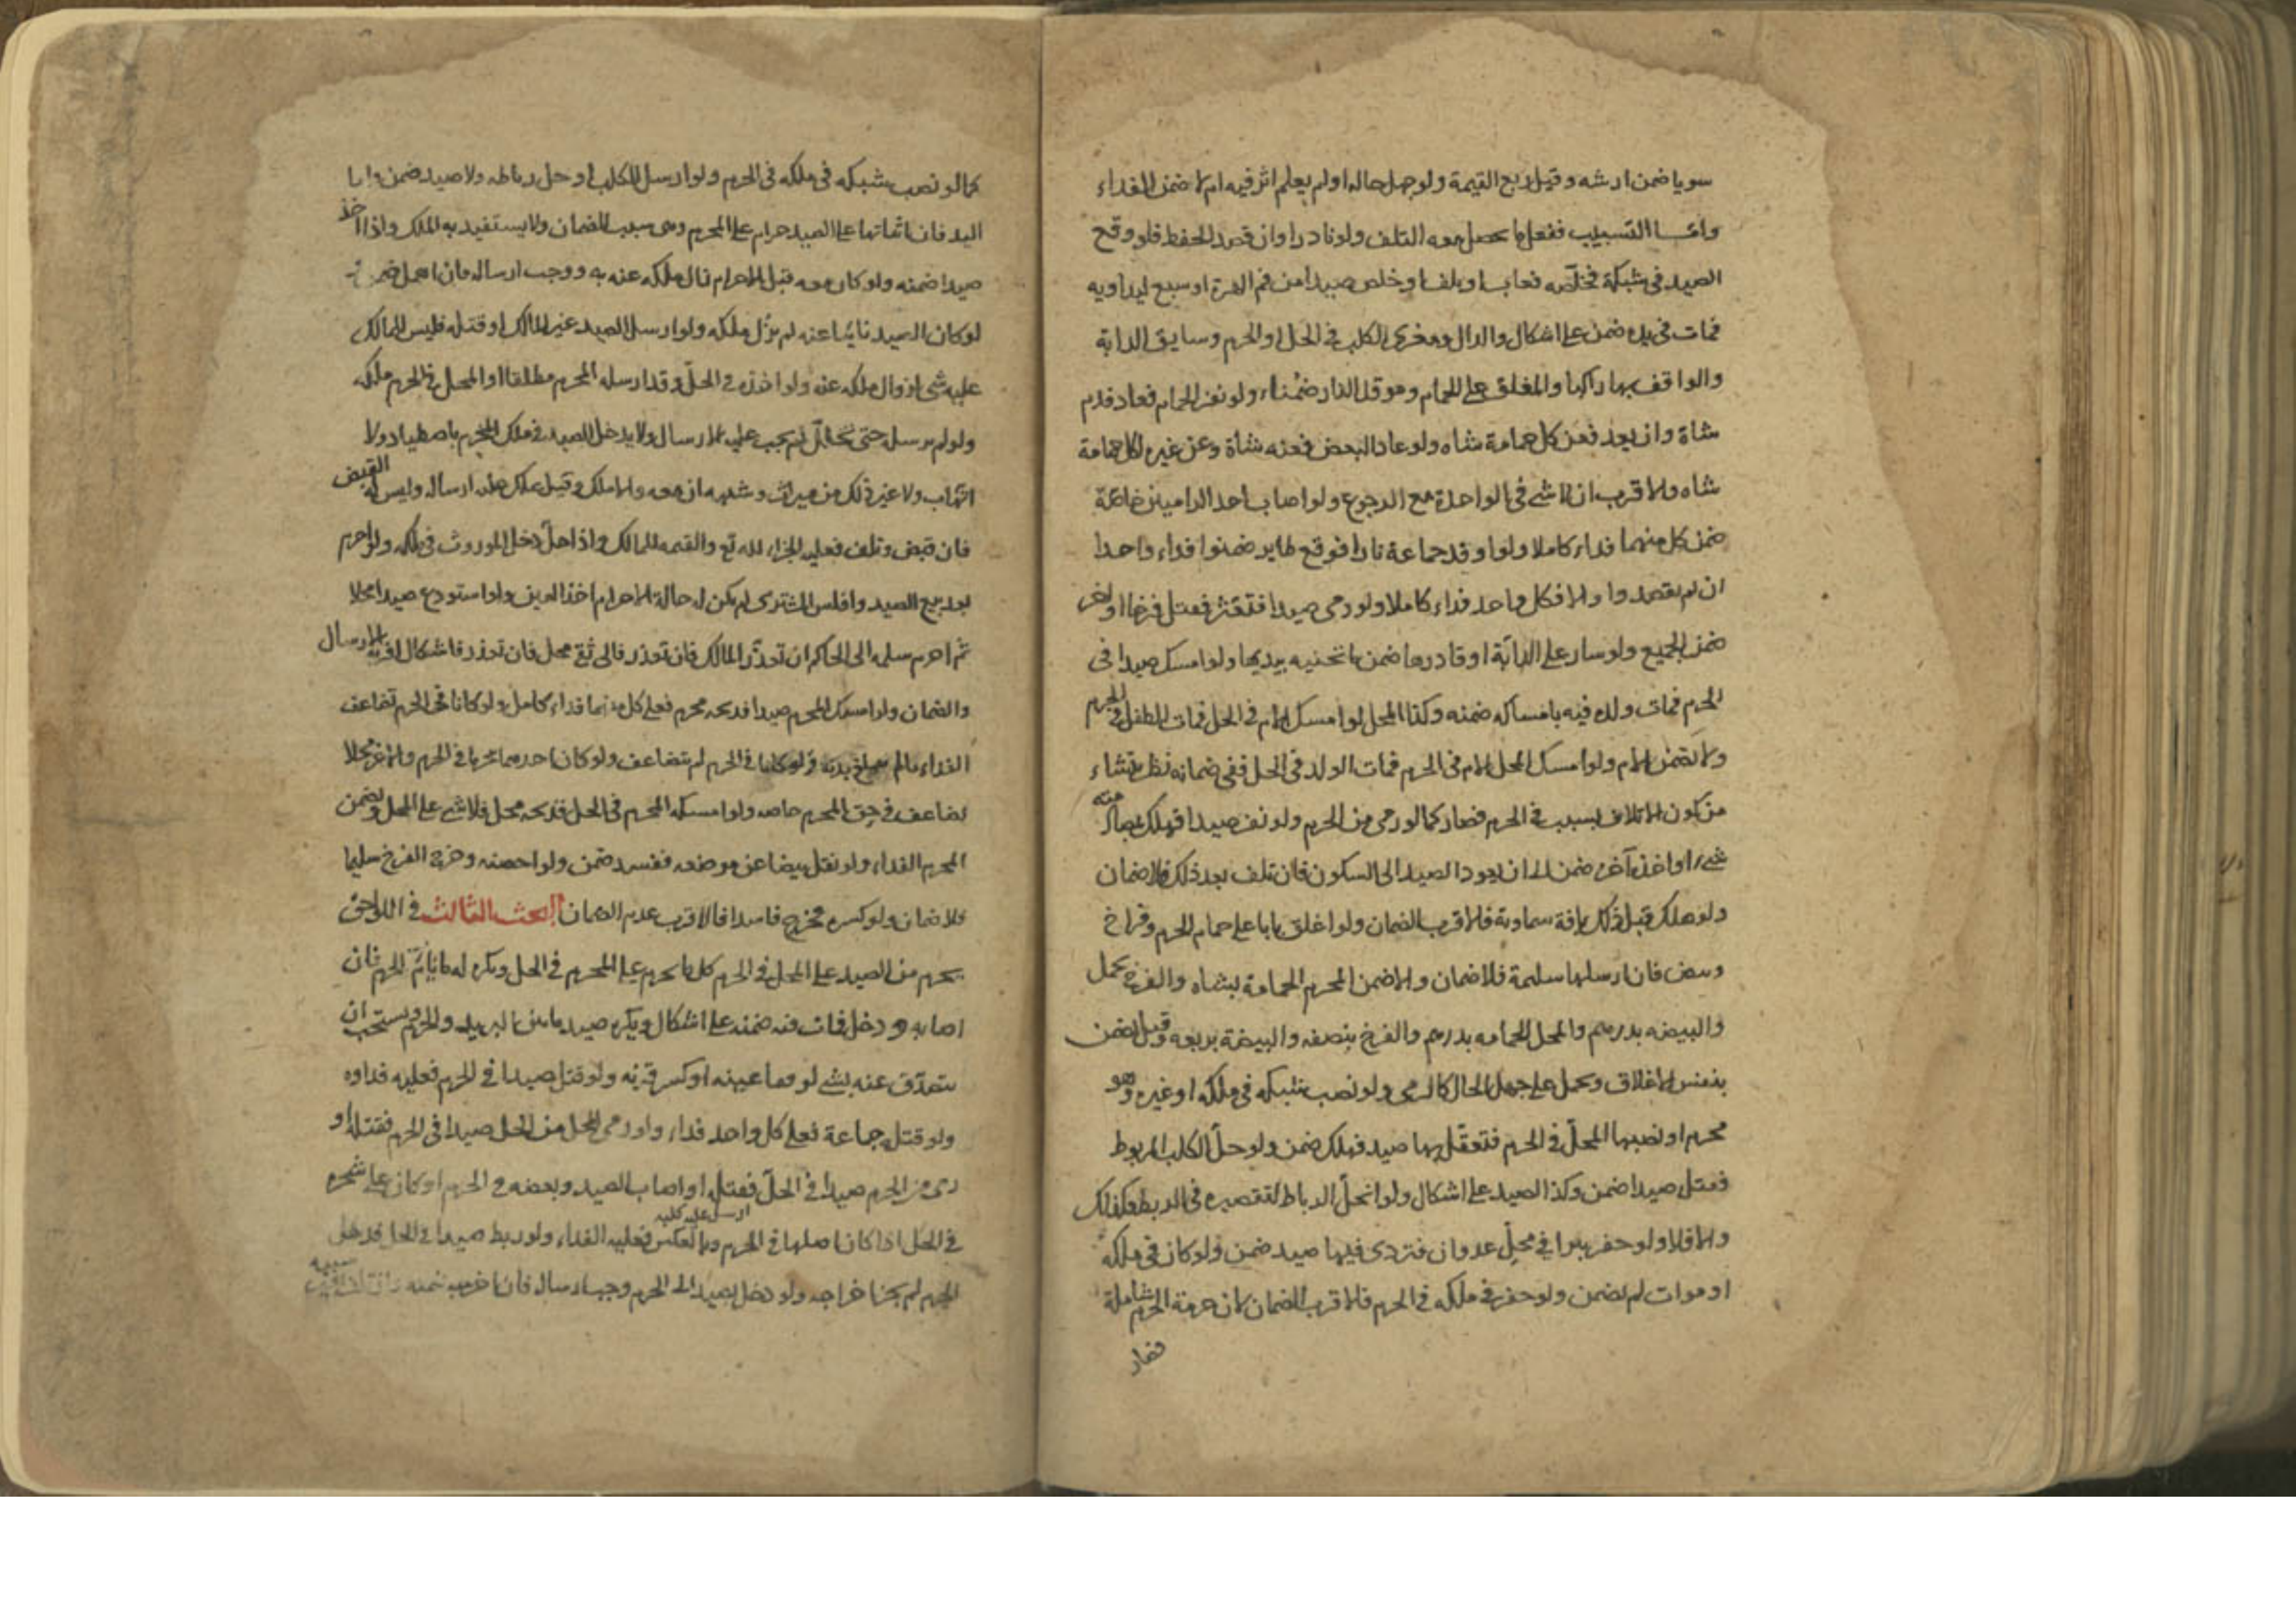 سويا ضمن ارشه وقيل ربع القيمة ولو جهل حاله او لم يعلم اثر فيه ام لا ضمن الفداء
واما التسبيب ففعل ما يحصل معه التلف ولو نادرا وان قصد الحفظ فلو وقع
الصيد في شبكة فخلصه فعاب او تلف او خلص صيدا من فم الهرة او سبع ليداويه
فمات في يده ضمن على اشكال والدال ومغري الكلب في الحل او الحرم وسايق الدابة
والواقف بها راكبا والمغلق على الحمام وموقد النار ضمناء ولو نفر الحمام فعاد فدم
شاة وان لم يعد فعن كل حمامة شاه ولو عاد البعض فعنه شاة وعن غيره لكل حمامة
شاه والاقرب ان لا شي في الواحدة مع الرجوع ولو اصاب احد الراميين خاصة
ضمن كل منهما فداء كاملا ولو اوقد جماعة نارا فوقع طاير ضمنوا فداء واحدا
ان لم يقصدوا والا فكل واحد فداء كاملا ولو رمى صيدا فتعثر فقتل فرخا او اخر
ضمن الجميع ولو سار على الدابة او قادها ضمن ما تجنيه بيديها ولو امسك صيدا في
الحرم فمات ولده فيه بامساكه ضمنه وكذا المحل لو امسك الام في الحل فمات الطفل في الحرم
ولا تضمن الام ولو امسك المحل الام في الحرم فمات الولد في الحل ففي ضمانه نظر ينشاء
من كون الاتلاف بسبب في الحرم فصار كما لو رمى من الحرم ولو نفر صيدا فهلك بمصادمة
شيء او اخذه آخر ضمن الى ان يعود الصيد الى السكون فان تلف بعد ذلك فلا ضمان
ولو هلك قبل ذلك بافة سماوية فالاقرب الضمان ولو اغلق بابا على حمام الحرم وفراخ
وبيض فان ارسلها سليمة فلا ضمان والا ضمن المحرم الحمامة بشاه والفرخ بحمل
والبيضه بدرهم والمحل الحمامه بدرهم والفرخ بنصفه والبيضة بربعه وقيل يضمن
بنفس الاغلاق ويحمل على جهل الحال كالرمي ولو نصب شبكه في ملكه او غيره وهو
محرم او نصبها المحل في الحرم فتعقل بها صيد فهلك ضمن ولو حل الكلب المربوط
فقتل صيدا ضمن وكذا الصيد على اشكال ولو انحل الرباط لتقصيره في الربط فكذلك
والا فلا ولو حفر بيرا في محل عدوان فتردى فيها صيد ضمن ولو كان في ملكه
او موات لم يضمن ولو حفر في ملكه في الحرم فالاقرب الضمان لان حرمة الحرم شاملة
فصار
كما لو نصب شبكه في ملكه في الحرم ولو ارسل الكلب او حل رباطه ولا صيد ضمن واما
اليد فان اثباتها على الصيد حرام على المحرم وهى سبب الضمان ولا يستفيد به الملك واذا اخذ
صيدا ضمنه ولو كان معه قبل الاحرام زال ملكه عنه به ووجب ارساله فان اهمل ضمن
لو كان الصيد نائيا عنه لم يزل ملكه ولو ارسل الصيد غير المالك او قتله فليس للمالك
عليه شى لزوال ملكه عنه ولو اخذه في الحل وقد ارسله المحرم مطلقا او المحل في الحرم ملكه
ولو لم يرسل حتى تحلل لم يجب عليه الارسال ولا يدخل الصيد في ملك المحرم باصطياد ولا
اتهاب ولا غير ذلك من ميراث وشبهه ان معه والا ملك وقيل يملك وعليه ارساله وليس له القبض
فان قبض وتلف فعليه الجزاء لله تع والقيمه للمالك واذا احل دخل الموروث في ملكه ولو احرم
بعد بيع الصيد وافلس المشترى لم يكن له حالة الاحرام اخذ العين ولو استودع صيدا محلا
ثم احرم سلمه الى الحاكم ان تعذر المالك فان تعذر فالى ثقة محل فان تعذر فاشكال اقربه الارسال
والضمان ولو امسك المحرم صيدا فذبحه محرم فعلى كل منهما فداء كامل ولو كانا في الحرم تضاعف
الفداء ما لم يبلغ بدنة ولو كانا في الحرم لم يتضاعف ولو كان احدهما محرما في الحرم والاخر محلا
تضاعف في حق المحرم خاصه ولو امسكه المحرم في الحل فذبحه محل فلا شى على المحل ويضمن
المحرم الفداء ولو نقل بيضا عن موضعه ففسد ضمن ولو احضنه وخرج الفرخ سليما
فلا ضمان ولو كسره فخرج فاسدا فالاقرب عدم الضمان البحث الثالث في اللواحق
يحرم من الصيد على المحل في الحرم كل ما يحرم على المحرم في الحل ويكره له ما يؤم الحرم فان
اصابه ودخل فمات فيه ضمنه على اشكال ويكره صيد ما بين البريد والحرم ويستحب ان
يتصدق عنه بشى لو فقا عينه او كسر قرنه ولو قتل صيدا في الحرم فعليه فداوه
ولو قتل جماعة فعلى كل واحد فداء ولو رمى المحل من الحل صيدا في الحرم فقتله او
رمى من الحرم صيدا في الحل فقتله او اصاب الصيد وبعضه في الحرم او كان على شجره
ارسل عليه كلبه
في الحل اذا كان اصلها في الحرم وبالعكس فعليه الفداء ولو ربط صيدا في الحل فدخل
الحرم لم يجز اخراجه ولو دخل بصيد الى الحرم وجب ارساله فان اخرجه ضمنه وان تلف بغير سببه